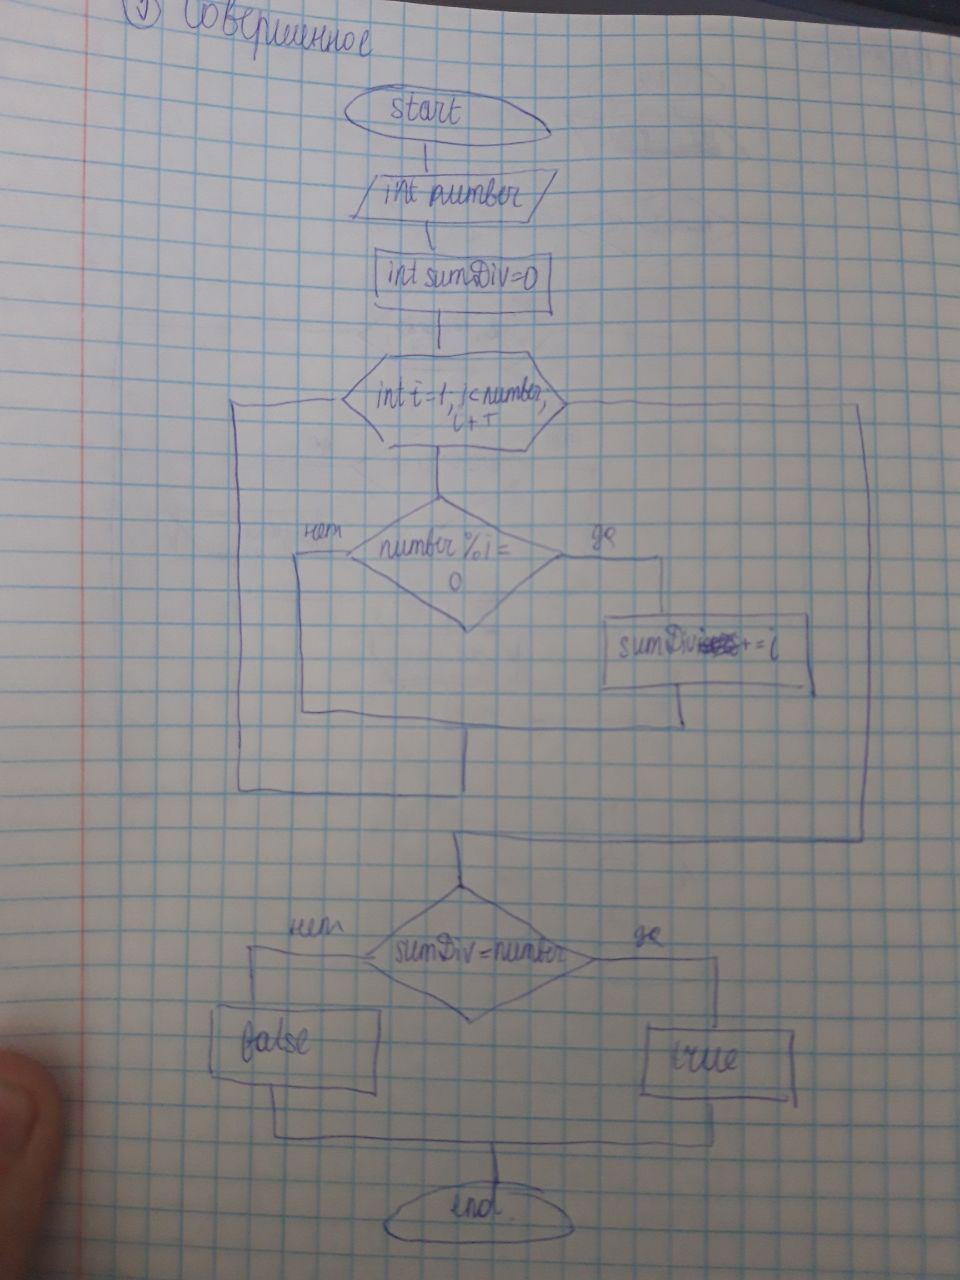 Совершенное
start
int number
int sumDiv=0
int i=1; i<number;
i++
number % i =
0
нет
да
sumDiv += i
sumDiv = number
нет
да
false
true
end